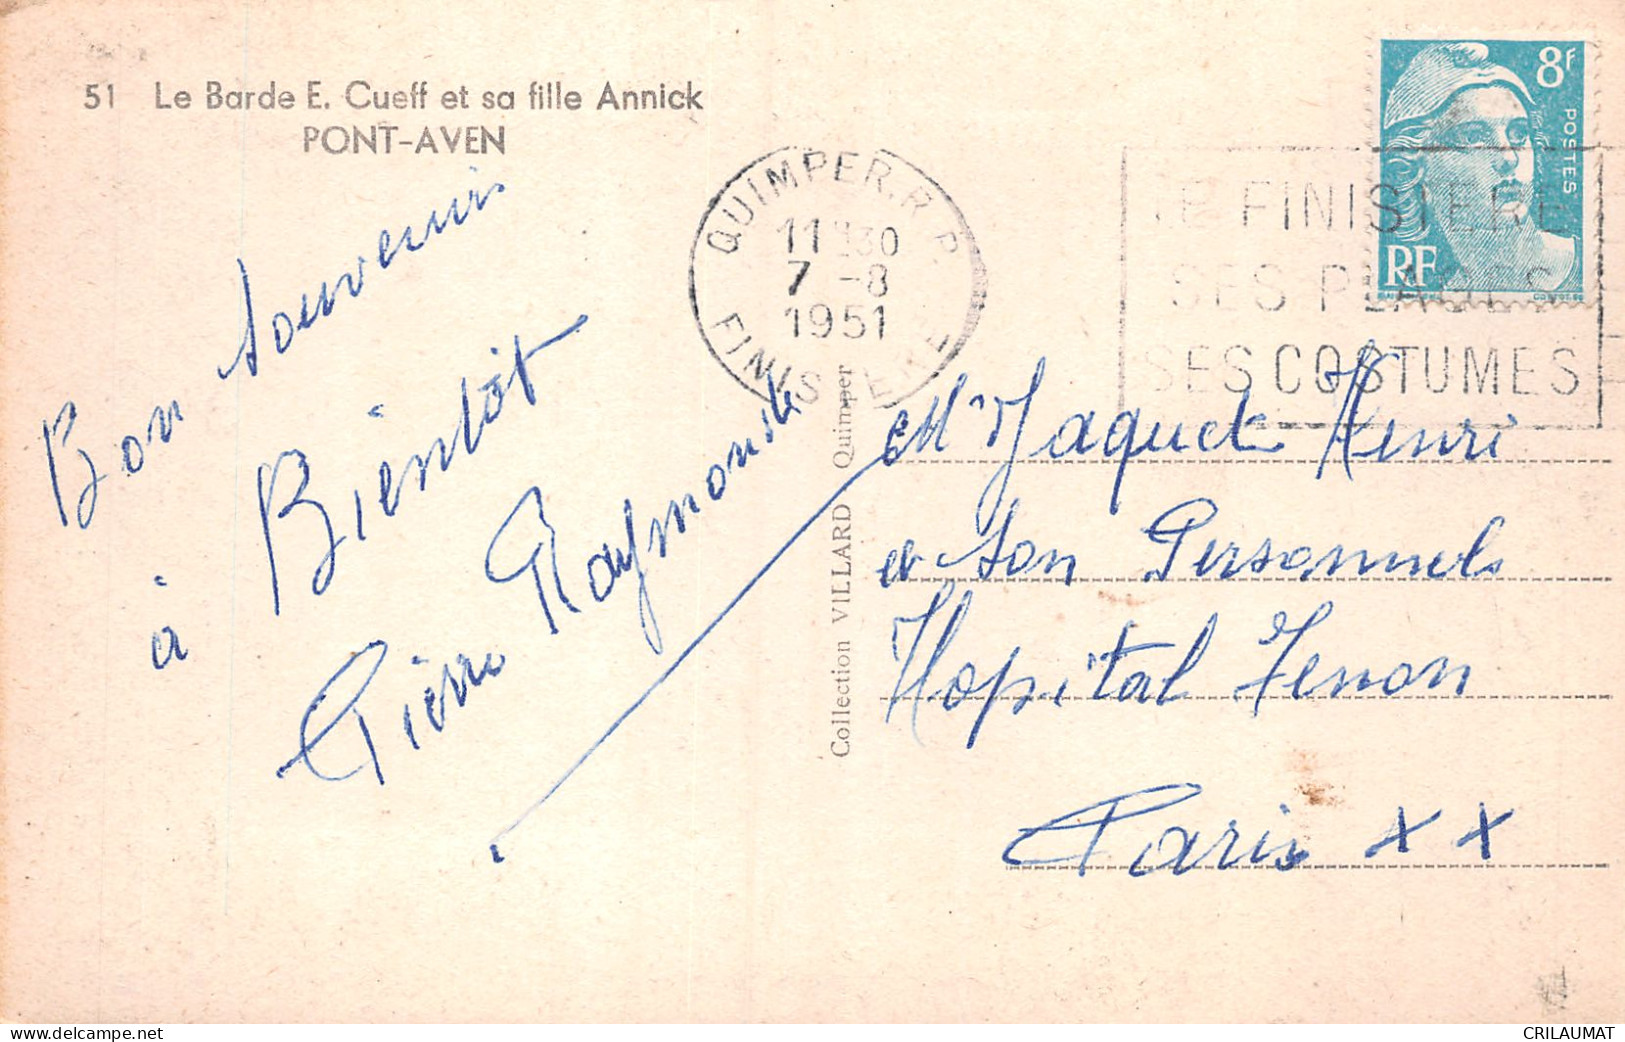 51 Le Barde E. Cueff et sa fille Annick
PONT-AVEN
Bon souvenir
à Bientôt
Pierre Raymonde
Collection VILLARD Quimper
QUIMPER.R.P.
11H30
7 -8
1951
FINISTERE
LE FINISTERE
SES PLAGES
SES COSTUMES
8F
POSTES
RF
Mr Jaquet Henri
et son Personnels
Hopital Tenon
Paris XX
www.delcampe.net
CRILAUMAT